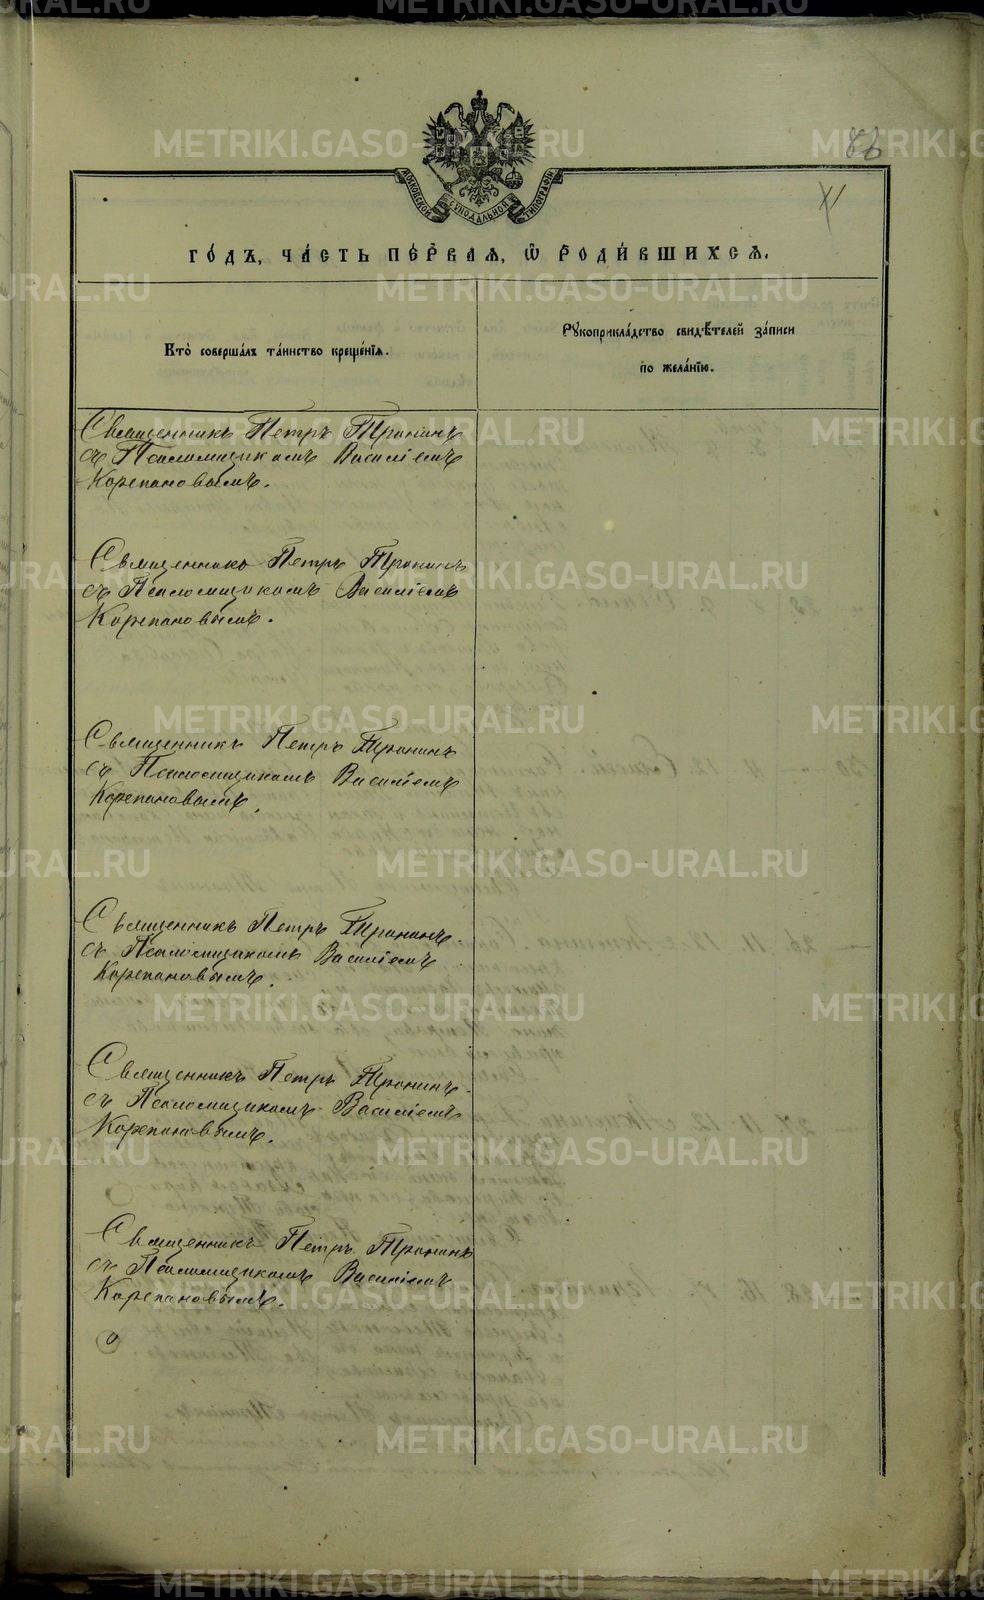 METRIKI.GASO-URAL.RU
86
МОСКОВСКОЙ СѴНОДАЛЬНОЙ ТИПОГРАФІИ
11
ГО́ДЪ, ЧА́СТЬ ПЕ́РВАѦ, Ѽ РОДИ́ВШИХСѦ.
Кто̀ соверша́лъ та́инство креще́нїѧ.
Рꙋкоприкла́дство свидѣ́телей за́писи
по жела́нїю.
Священникъ Петръ Тронинъ
съ Псаломщикомъ Василіемъ
Корепановымъ.
Священникъ Петръ Тронинъ
съ Псаломщикомъ Василіемъ
Корепановымъ.
Священникъ Петръ Тронинъ
съ Псаломщикомъ Василіемъ
Корепановымъ.
Священникъ Петръ Тронинъ.
съ Псаломщикомъ Василіемъ
Корепановымъ.
Священникъ Петръ Тронинъ.
съ Псаломщикомъ Василіемъ
Корепановымъ.
Священникъ Петръ Тронинъ
съ Псаломщикомъ Василіемъ
Корепановымъ.